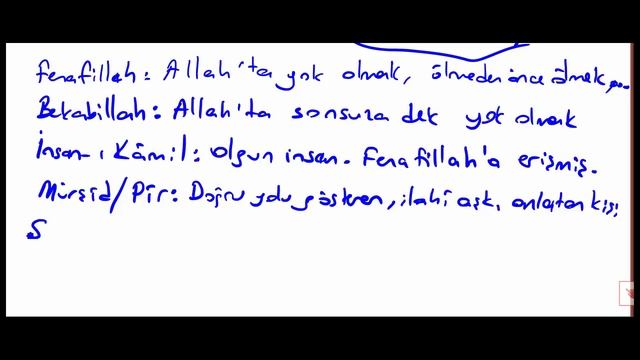 Fenafillah: Allah'ta yok olmak, ölmeden önce ölmek
Bekabillah: Allah'ta sonsuza dek yok olmak
İnsan-ı Kâmil: Olgun insan. Fenafillah'a erişmiş.
Mürşid/Pir: Doğru yolu gösteren, ilahi aşkı anlatan kişi
S